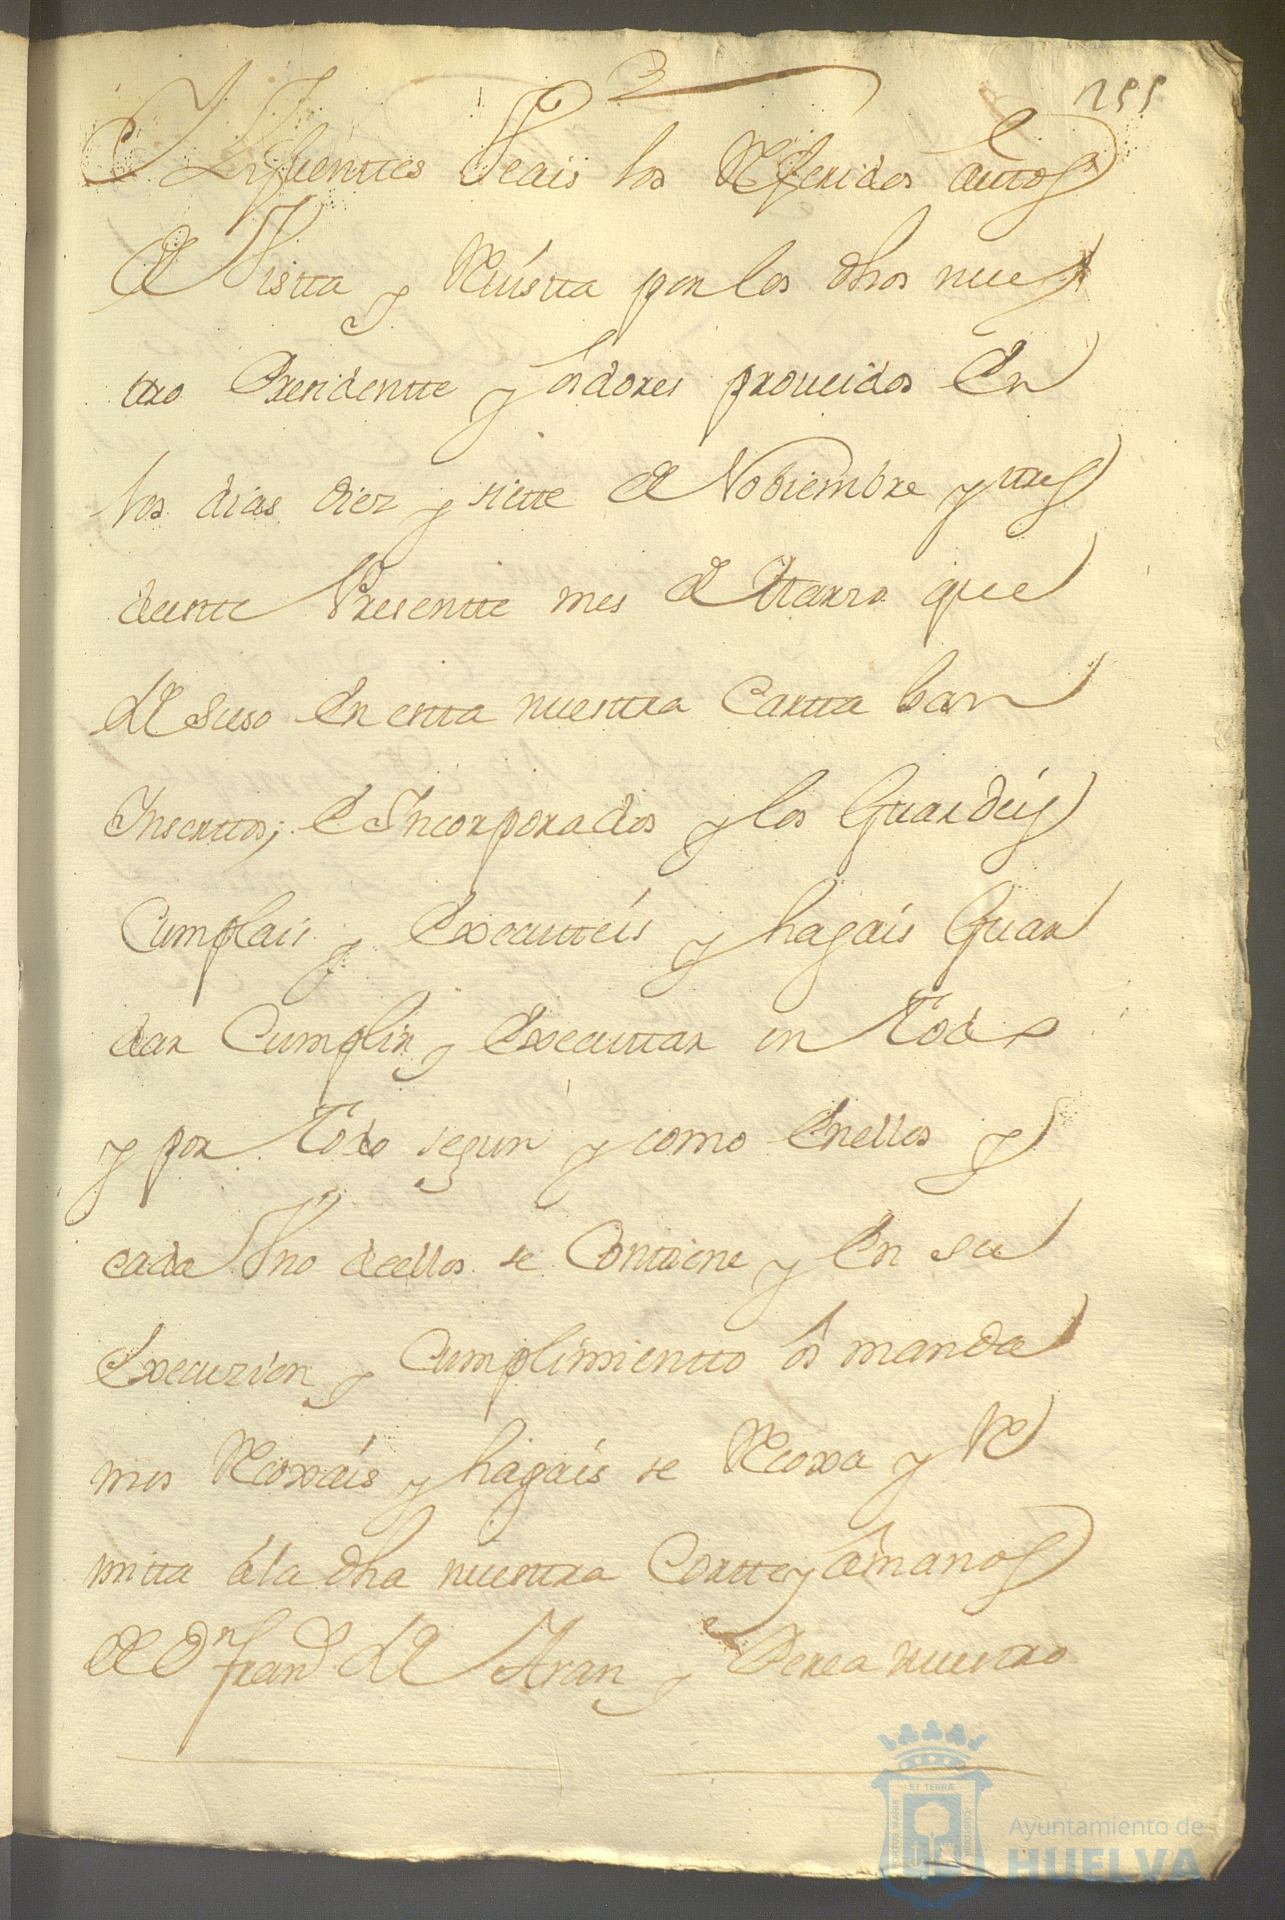 155
Siguienttes Veais los Referidos autos
de Vistta y Revistta por los dhos nues
tro Presidentte y oidores proueidos en
los dias diez y siette de Nobiembre y tres
deeste Presentte mes de Marzo que
de suso en estta nuestra Cartta ban
Insertos; e Incorporados y los Guardéis
Cumplais y Executéis y hagáis Guar
dar Cumplir y Executtar en Todo
y por Todo segun y como Enellos y
cada Vno deellos se Contiene y En su
Execuzion y Cumplimientto os manda
mos Recoxáis y hagáis se Recoxa y Re
mitta á la dha nuestra Cortte y â manos
de Dn Franco de Aran y Perea nuestro
ET TERRÆ
Ayuntamiento de
HUELVA